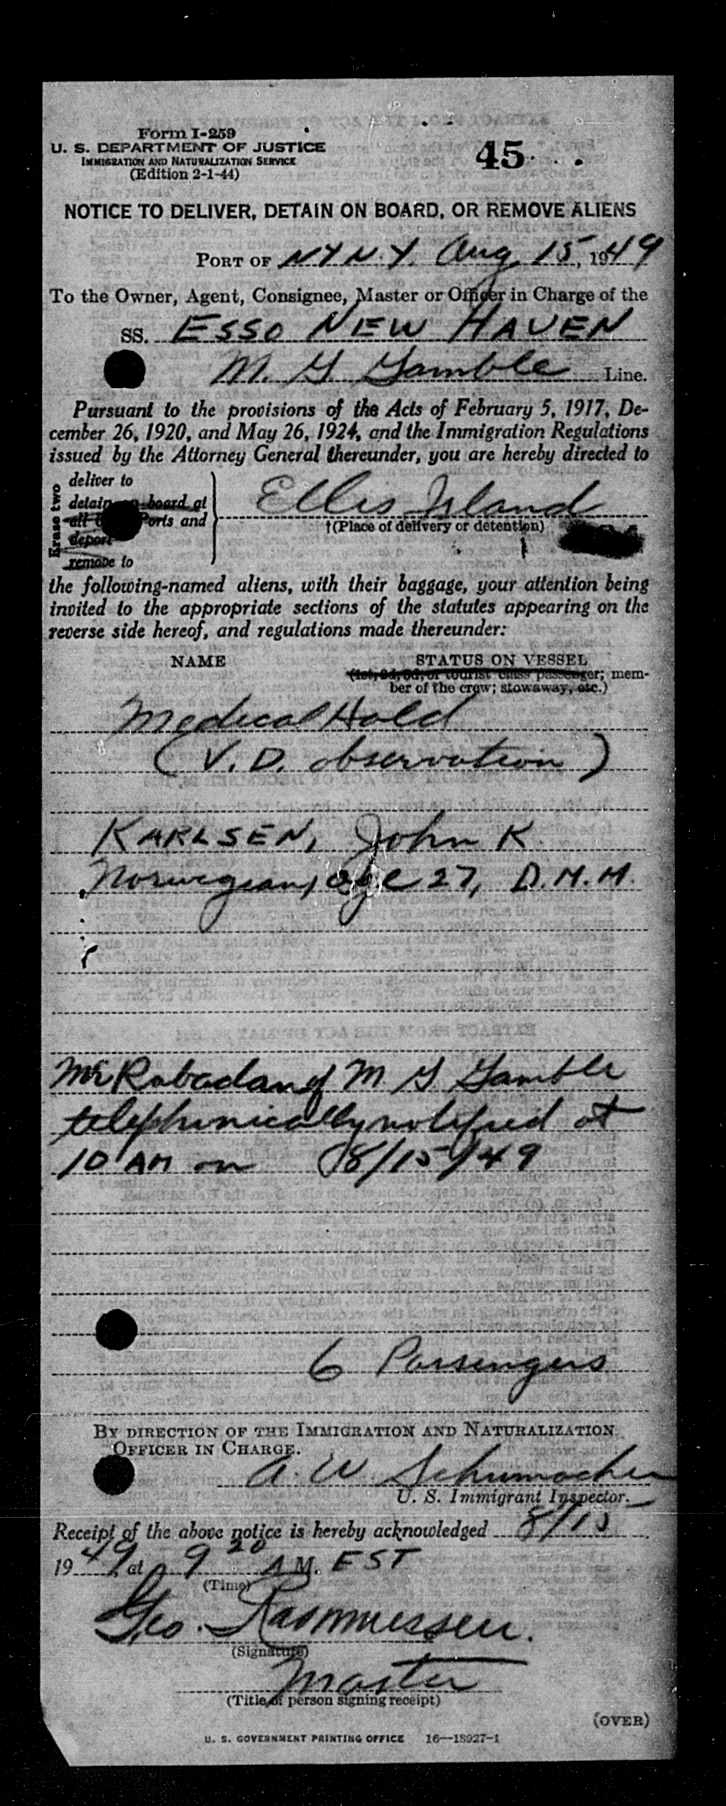 Form I-259
U. S. DEPARTMENT OF JUSTICE
IMMIGRATION AND NATURALIZATION SERVICE
(Edition 2-1-44)
45
NOTICE TO DELIVER, DETAIN ON BOARD, OR REMOVE ALIENS
PORT OF NYN.Y. Aug 15, 1949
To the Owner, Agent, Consignee, Master or Officer in Charge of the
SS. ESSO NEW HAVEN
M. G. Gamble Line.
Pursuant to the provisions of the Acts of February 5, 1917, De-
cember 26, 1920, and May 26, 1924, and the Immigration Regulations
issued by the Attorney General thereunder, you are hereby directed to
Erase two
deliver to
detain on board at
all Ports and
deport
remove to
Ellis Island
†(Place of delivery or detention)
the following-named aliens, with their baggage, your attention being
invited to the appropriate sections of the statutes appearing on the
reverse side hereof, and regulations made thereunder:
NAME STATUS ON VESSEL
(1st, 2d, 3d, or tourist class passenger; mem-
ber of the crew; stowaway, etc.)
Medical Hold
(V.D. observation)
KARLSEN, John K.
Norwegian, age 27, D.H.M.
Mr Rabadan of M G Gamble
telephonically notified at
10 AM on 8/15/49
6 Passengers
BY DIRECTION OF THE IMMIGRATION AND NATURALIZATION
OFFICER IN CHARGE.
A. W. Schumacher
U. S. Immigrant Inspector.
Receipt of the above notice is hereby acknowledged 8/15
1949, at 9 20 A M. EST
(Time)
Geo. Rasmussen.
(Signature)
Master
(Title of person signing receipt)
(OVER)
U. S. GOVERNMENT PRINTING OFFICE 16—18927-1